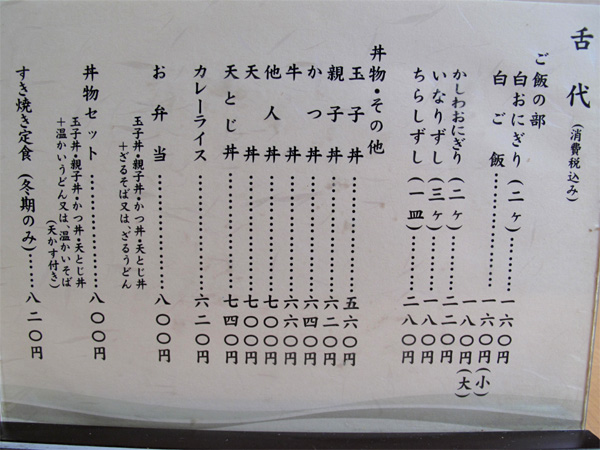 舌代(消費税込み)
ご飯の部
白おにぎり(二ヶ)……一六〇円
白ご飯……一六〇円(小)
一八〇円(大)
かしわおにぎり(二ヶ)……二二〇円
いなりずし(三ヶ)……一八〇円
ちらしずし(一皿)……二八〇円
丼物・その他
玉子丼……五六〇円
親子丼……六二〇円
かつ丼……六四〇円
牛丼……六六〇円
他人丼……七〇〇円
天丼……七〇〇円
天とじ丼……七四〇円
カレーライス……六二〇円
お弁当……八〇〇円
玉子丼・親子丼・かつ丼・天とじ丼
+ざるそば又は、ざるうどん
丼物セット……八〇〇円
玉子丼・親子丼・かつ丼・天とじ丼
+温かいうどん又は、温かいそば
(天かす付き)
すき焼き定食(冬期のみ)……八二〇円